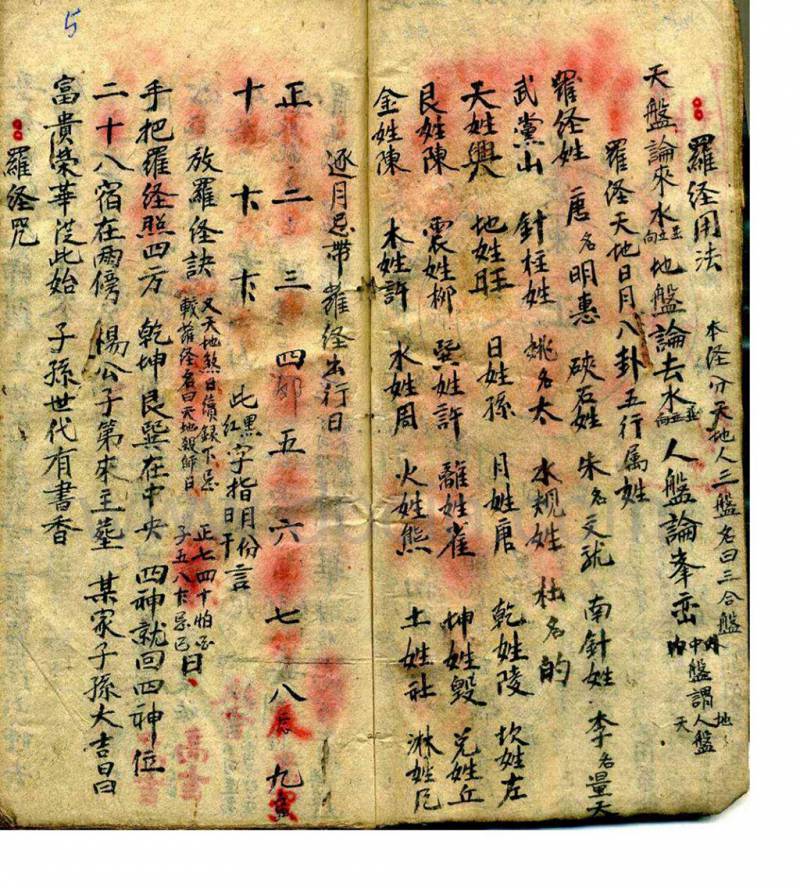 羅経用法 本経分天地人三盤名曰三合盤
天盤論來水並立向 地盤論去水並立向 人盤論峯巒 盤謂人盤 天 地
羅経天地日月八卦五行属姓
羅経姓 唐名明惠 硤石姓 朱名文就 南針姓 李名量天
武黨山 針柱姓 姚名太 水規姓 杜名的
天姓興 地姓旺 日姓孫 月姓唐 乾姓陵 坎姓左
艮姓陳 震姓柳 巽姓許 離姓雀 坤姓毀 兑姓丘
金姓陳 木姓許 水姓周 火姓熊 土姓社 淋姓
逐月忌帶羅経出行日
正 二 三 四 五 六 七 八 九
十 卞 卞 此黑字指月份 紅 日干言
放羅経訣 又天地煞日續録下忌 載羅経者曰天地報師日 正七四十怕 子五八卞忌 日
手把羅経照四方 乾坤艮巽在中央 四神就回四神位
二十八宿在兩傍 楊公子第來主塟 某家子孫大吉昌
富貴榮華從此始 子孫世代有書香
羅経咒
5